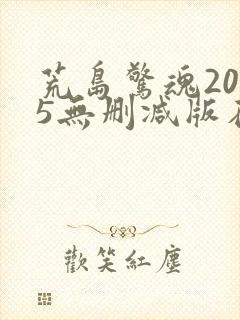 荒島驚魂20
5無刪減版
歡笑紅塵